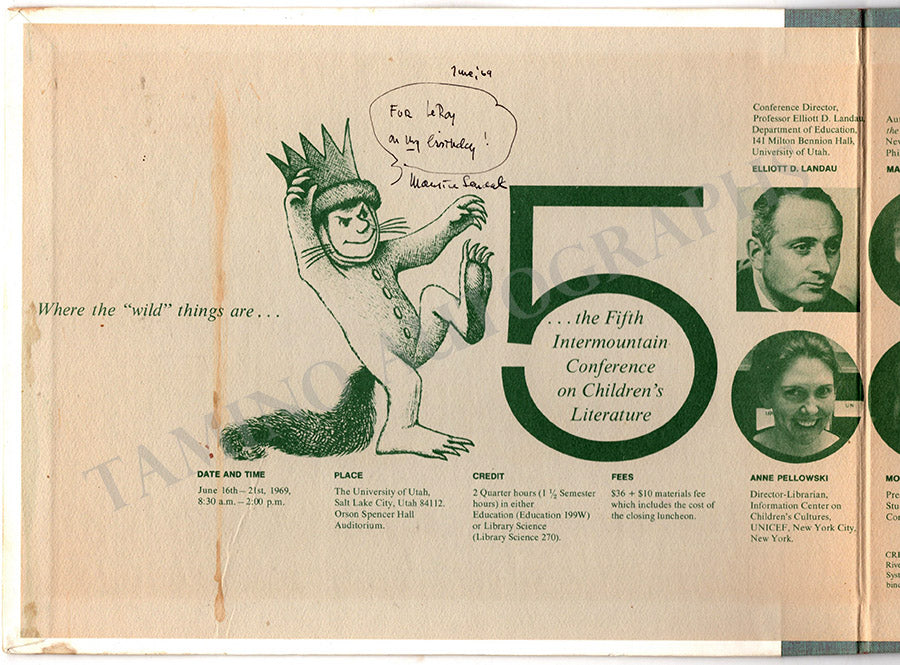 June, '69
For LeRoy
on my birthday!
Maurice Sendak
Where the "wild" things are . . .
5
. . . the Fifth
Intermountain
Conference
on Children's
Literature
Conference Director,
Professor Elliott D. Landau
Department of Education,
141 Milton Bennion Hall,
University of Utah.
ELLIOTT D. LANDAU
DATE AND TIME
June 16th—21st, 1969,
8:30 a.m.—2:00 p.m.
PLACE
The University of Utah,
Salt Lake City, Utah 84112.
Orson Spencer Hall
Auditorium.
CREDIT
2 Quarter hours (1 ½ Semester
hours) in either
Education (Education 199W)
or Library Science
(Library Science 270).
FEES
$36 + $10 materials fee
which includes the cost of
the closing luncheon.
UN
ANNE PELLOWSKI
Director-Librarian,
Information Center on
Children's Cultures,
UNICEF, New York City,
New York.
Au
the
Nev
Phi
MA
MO
Pre
Stu
Co
CRE
Rive
Syst
binc
TAMINO AUTOGRAPHS